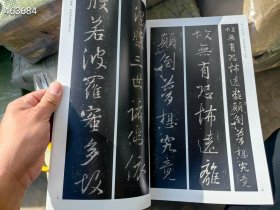 故無有恐怖遠離顛倒夢想究竟
故無有恐怖遠離
顛倒夢想究竟
涅槃三世諸佛依
般若波羅蜜多故